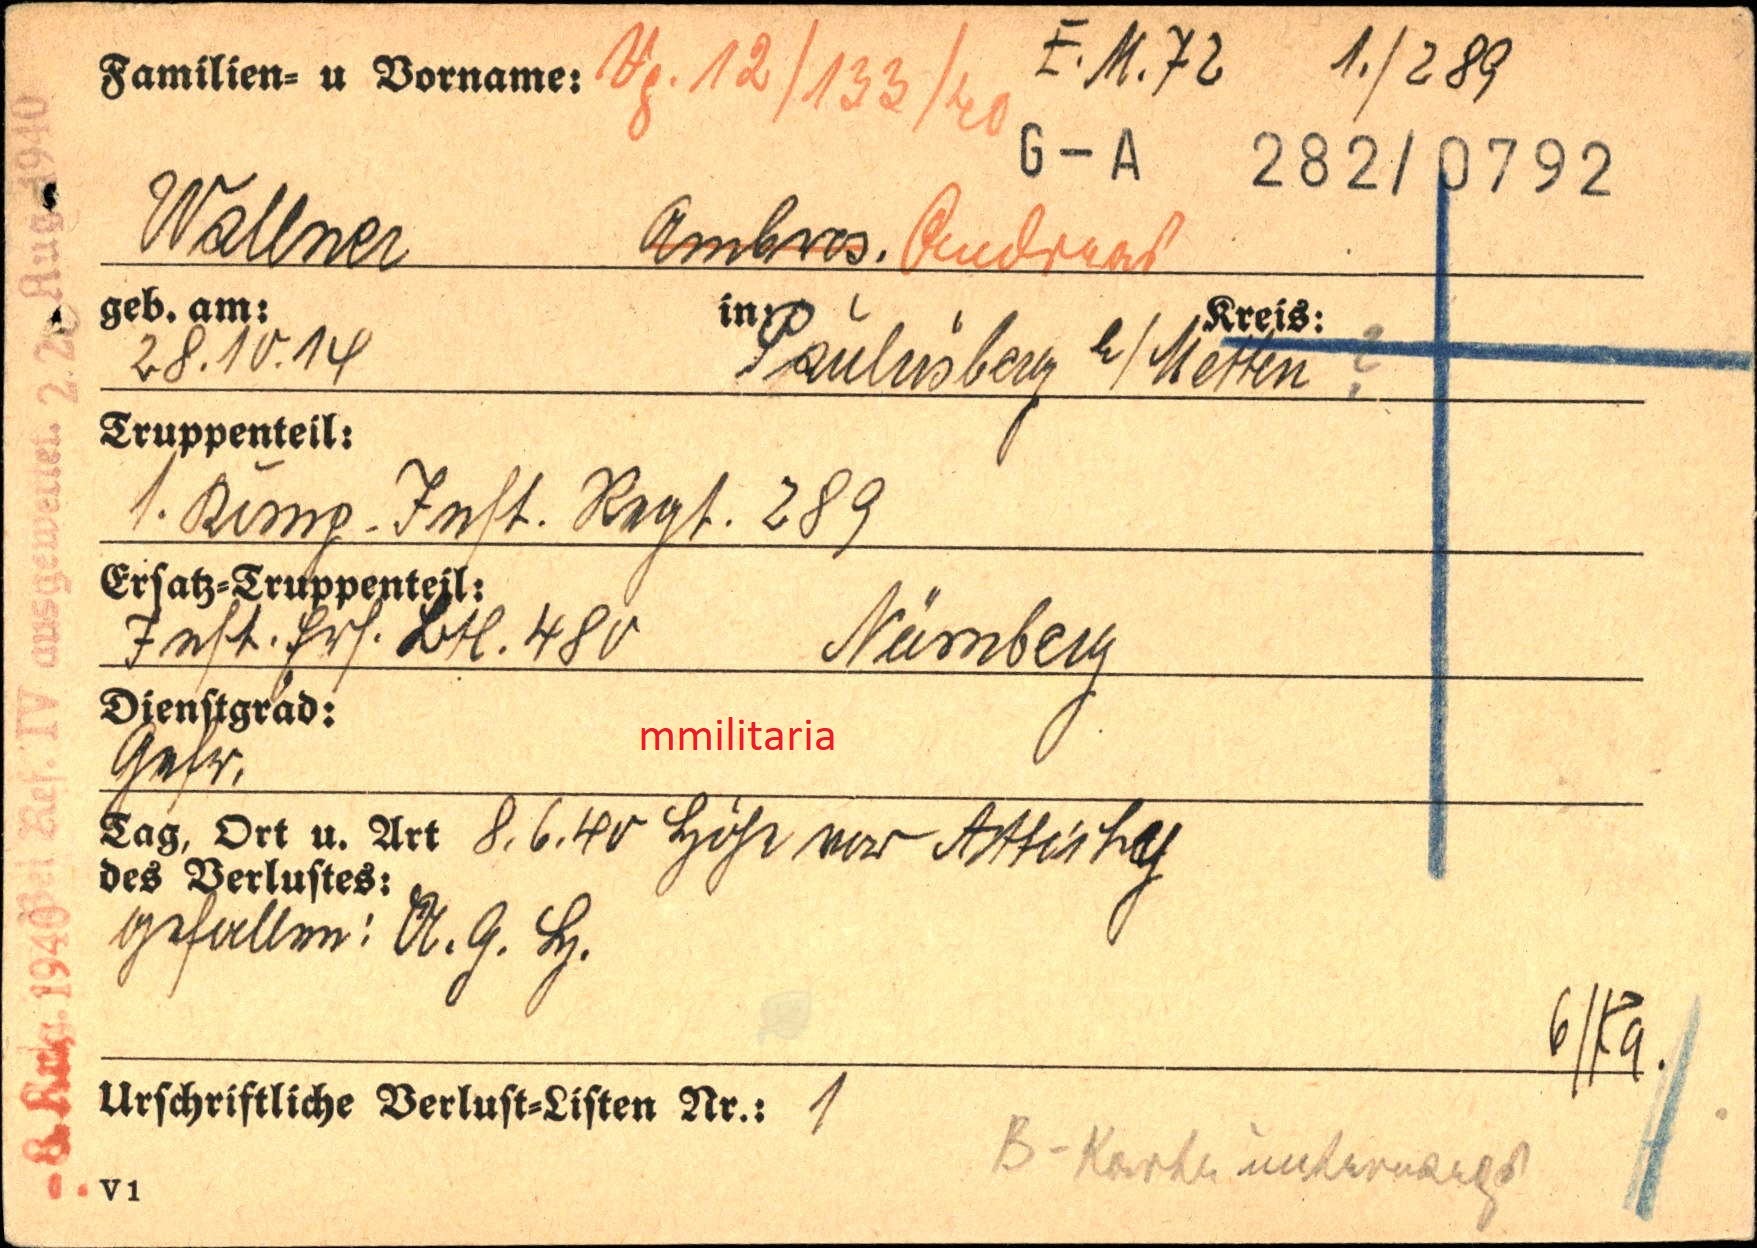 Familien- u Vorname: Vg. 12/133/40 E.M.72 1./289
G-A 282/0792
Wallner Ambros. Andreas
geb. am: in: Kreis:
28.10.14 Paulusberg b/Metten ?
Truppenteil:
1. Komp. Inft. Regt. 289
Ersatz-Truppenteil:
Inft. Ers. Btl. 480 Nürnberg
Dienstgrad:
Gefr.
mmilitaria
Tag, Ort u. Art 8.6.40 Höhe vor
des Verlustes:
gefallen: A.G.H.
6/Ka.
Urschriftliche Verlust-Listen Nr.: 1
B-Karte unterwegs
V 1
- 8. Aug. 1940 Bei Ref. IV ausgewertet. 2. Aug. 1940